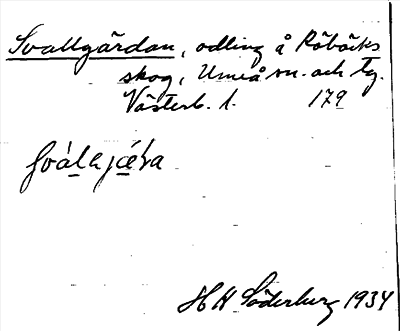 Svallgärdan, odling å Röbäcks
skog, Umeå sn. och tg.
Västerb. l. 179
H H Söderburg 1934